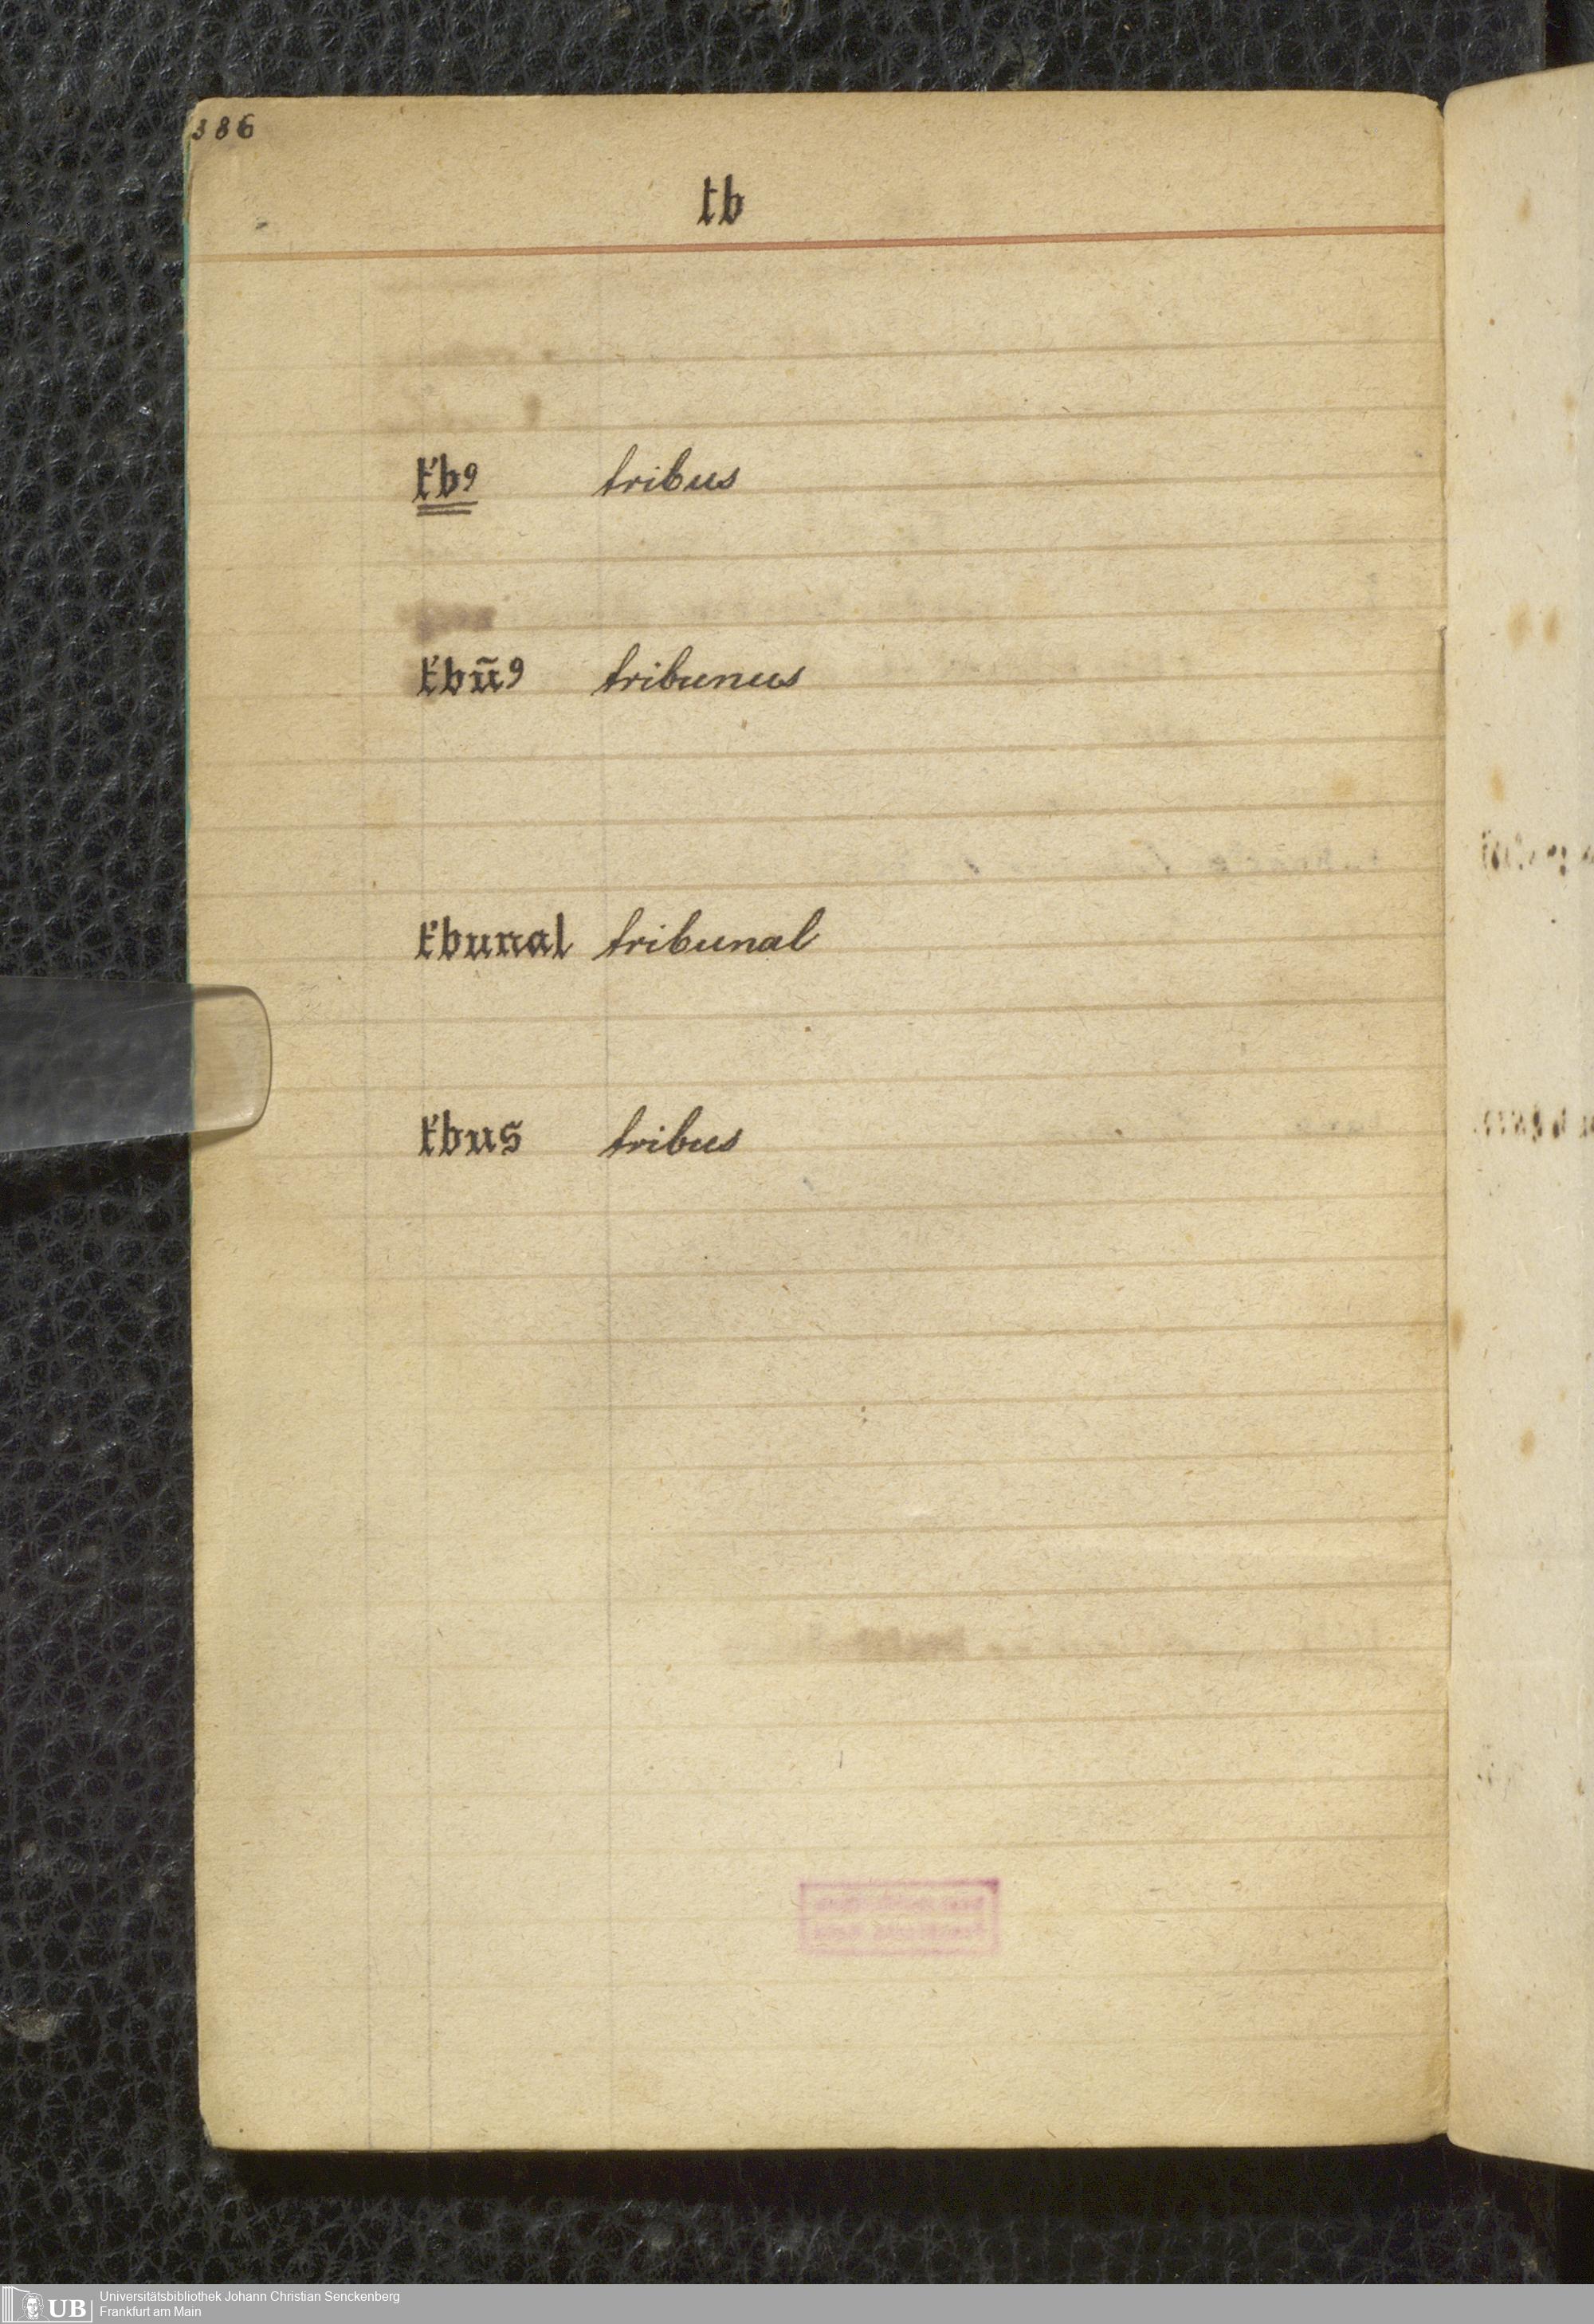 386
tb
t'bꝰ tribus
t'bũꝰ tribunus
t'bunal tribunal
t'bus tribus
UB Universitätsbibliothek Johann Christian Senckenberg
Frankfurt am Main